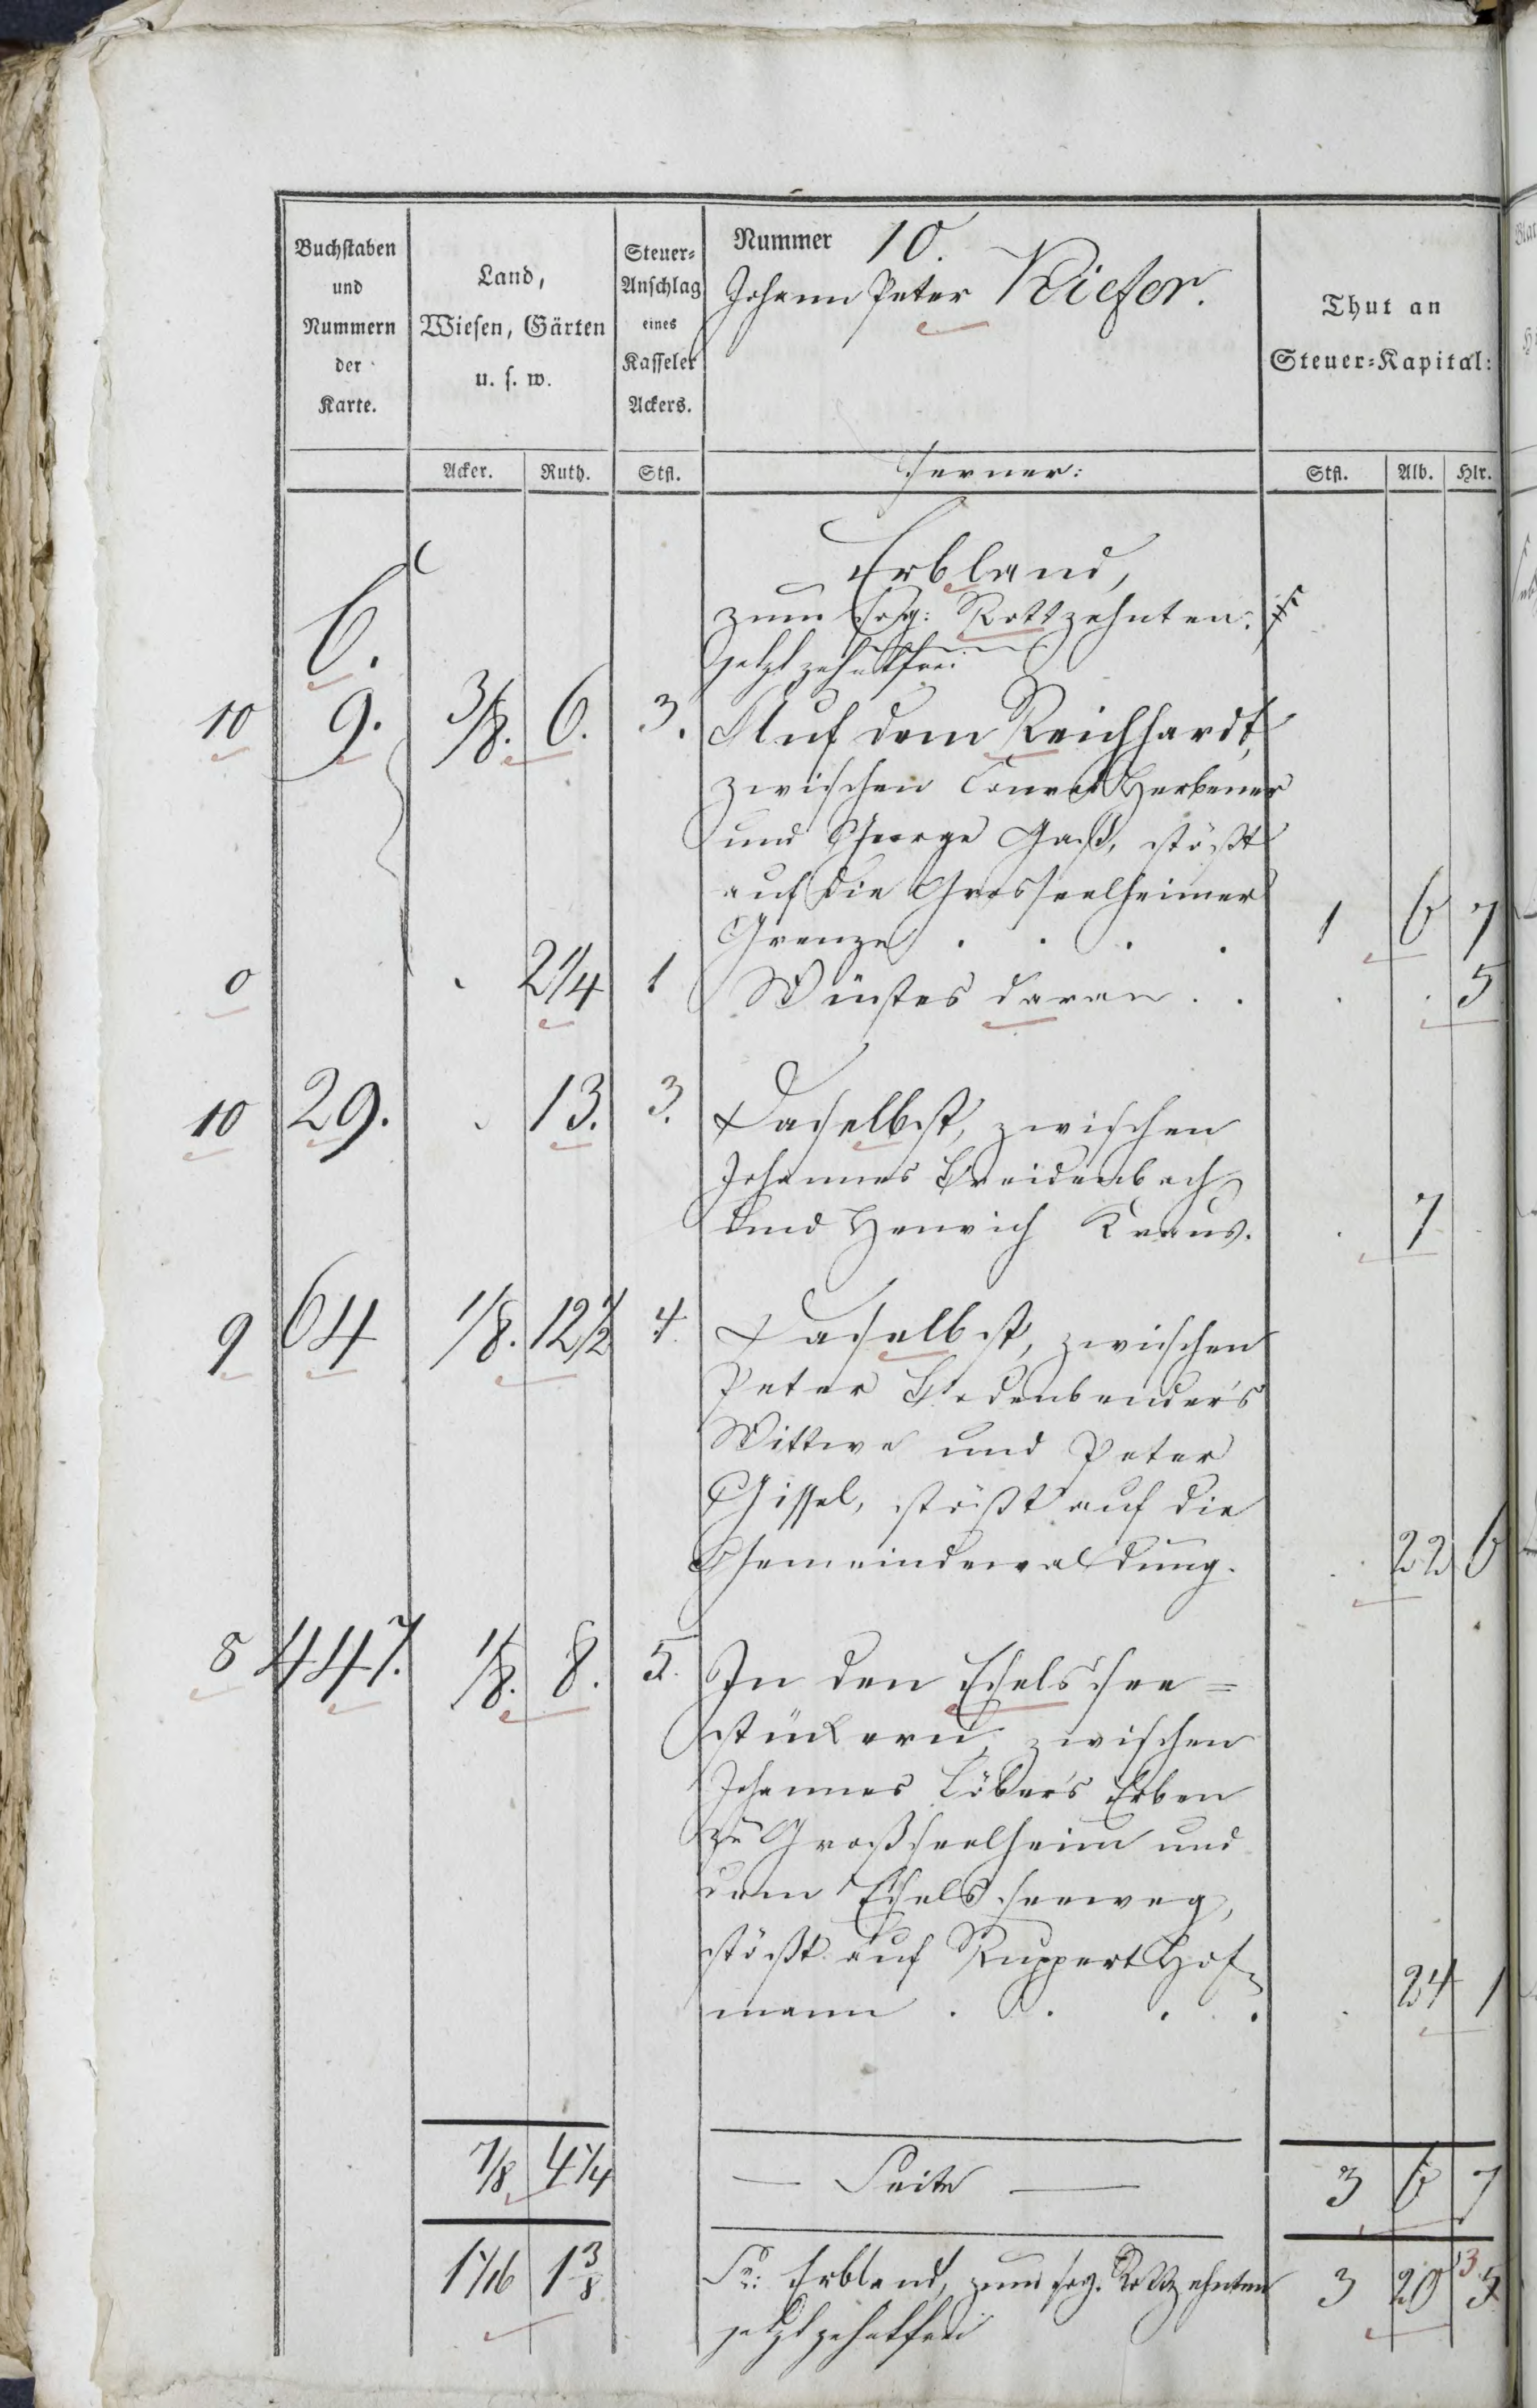 Buchstaben und Nummern der Karte.
Land, Wiesen, Gärten u. s. w.
Steuer-Anschlag eines Kasseler Ackers.
Nummer 10.
Johann Peter Kiefer.
Thut an Steuer-Kapital:
Acker. Ruth. Stfl. Ferner: Stfl. Alb. Hlr.
Erbland,
zum sog: Rottzehnten;
jetzt zehntfrei
C.
10 9. 3/8. 6. 3. Auf dem Reichhardt,
zwischen Conrad Herbener
und George Gaß, stößt
auf die Grosseelheimer
Grenze . . . . 1 6 7
0 2 1/4 1 Wüstes daran . . . . 5
10 29. 13. 3. Daselbst, zwischen
Johannes Breidenbach
und Henrich Kraus. . 7
9 64 1/8. 12 1/2 4. Daselbst, zwischen
Peter Bodenbender's
Wittwe und Peter
Gissel, stößt auf die
Gemeindewaldung. . 22 6
8 447. 1/8. 8. 5. In den Eselssee=
stückern, zwischen
Johannes Löber's Erben
zu Großseelheim und
dem Eselsseeweg,
stößt auf Ruppert Hof=
mann . . . . . 24 1
7/8 4 1/4 — Seite — 3 6 7
1 1/16 1 3/8 Sa: Erbland, zum sog. Rottzehnten 3 20 3
jetzt zehntfrei